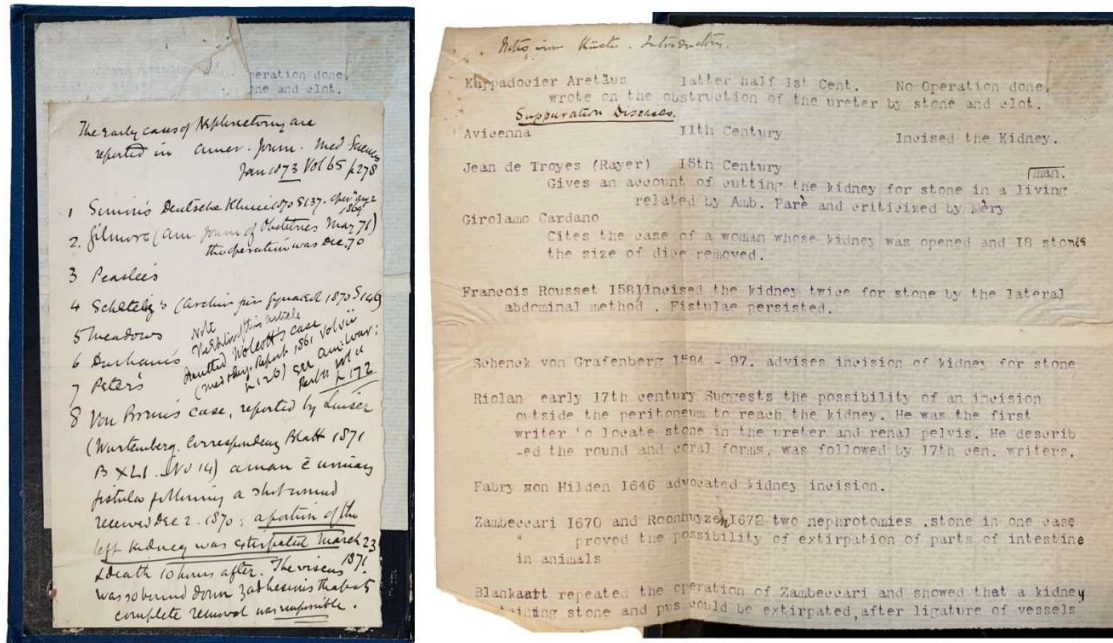 operation done.
ne and clot.
The early cases of Nephrectomy are
reported in Amer. Journ. Med Sciences
Jan 1873 Vol 65 p 278
1 Simon's Deutsche Klinik 1870 S 137. oper Aug 2
1869
2. Gilmore (Am Journ of Obstetrics May 71)
the operation was Dec. 70
3 Peaslee's
4 (Archiv für Gynaekol 1870 S 146)
5 Meadows
6 Durham's
7 Peter's
Note
this article
omitted Wolcott's case
(Med & Surg. Report. 1861 Vol vii
p 126) see Am. War:
Vol ii
p 172
8 Von Bruns case, reported by Linser
(Wurtemberg. Correspondenz Blatt 1871
B XLI. No 14) a man c̄ urinary
fistula following a shot wound
received Dec 2. 1870; a portion of the
left kidney was extirpated March 23
1871
& death 10 hours after. The viscus
was so bound down adhesions that its
complete removal was impossible.
Notes from Küster. Introductory.
Kappadocier Aretäus latter half 1st Cent. No Operation done.
wrote on the obstruction of the ureter by stone and clot.
Suppuration Diseases.
Avicenna 11th Century Incised the Kidney.
Jean de Troyes (Rayer) 15th Century
man.
Gives an account of cutting the kidney for stone in a living
related by Amb. Parè and criticized by Mèry
Girolamo Cardano
Cites the case of a woman whose kidney was opened and I8 stones
the size of dice removed.
Francois Rousset I58I Incised the kidney twice for stone by the lateral
abdominal method . Fistulae persisted.
Schenck von Grafenberg I584 - 97. advises incision of kidney for stone
Riolan early 17th century Suggests the possibility of an incision
outside the peritoneum to reach the kidney. He was the first
writer 'o locate stone in the ureter and renal pelvis. He describ
-ed the round and coral forms, was followed by 17th cen. writers.
Fabry von Hilden I646 advocated kidney incision.
Zambeccari I670 and Roonhuyzen I672 two nephrotomies .stone in one case
" proved the possibility of extirpation of parts of intestine
in animals
Blankaart repeated the operation of Zambeccari and showed that a kidney
taining stone and pus could be extirpated,after ligature of vessels